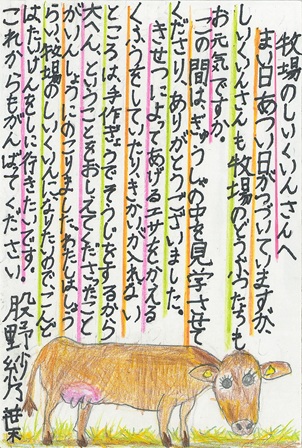 牧場のしいくいんさんへ
まい日あつい日がつづいていますが、
しいくいんさんも牧場のどうぶつたちも
お元気ですか。
この間は、ぎゅうしゃの中を見学させて
くださり、ありがとうございました。
きせつによってあげるエサをかえる
くふうをしていたり、きかいが入れない
ところは、手作ぎょうでそうじをするから
大へん、ということをおしえてくださったこと
がいんしょうにのこりました。わたしはしょ
らい、牧場のしいくいんになりたいので、こんど
はたいけんをしに行きたいです。
これからもがんばってください。
股野紗乃